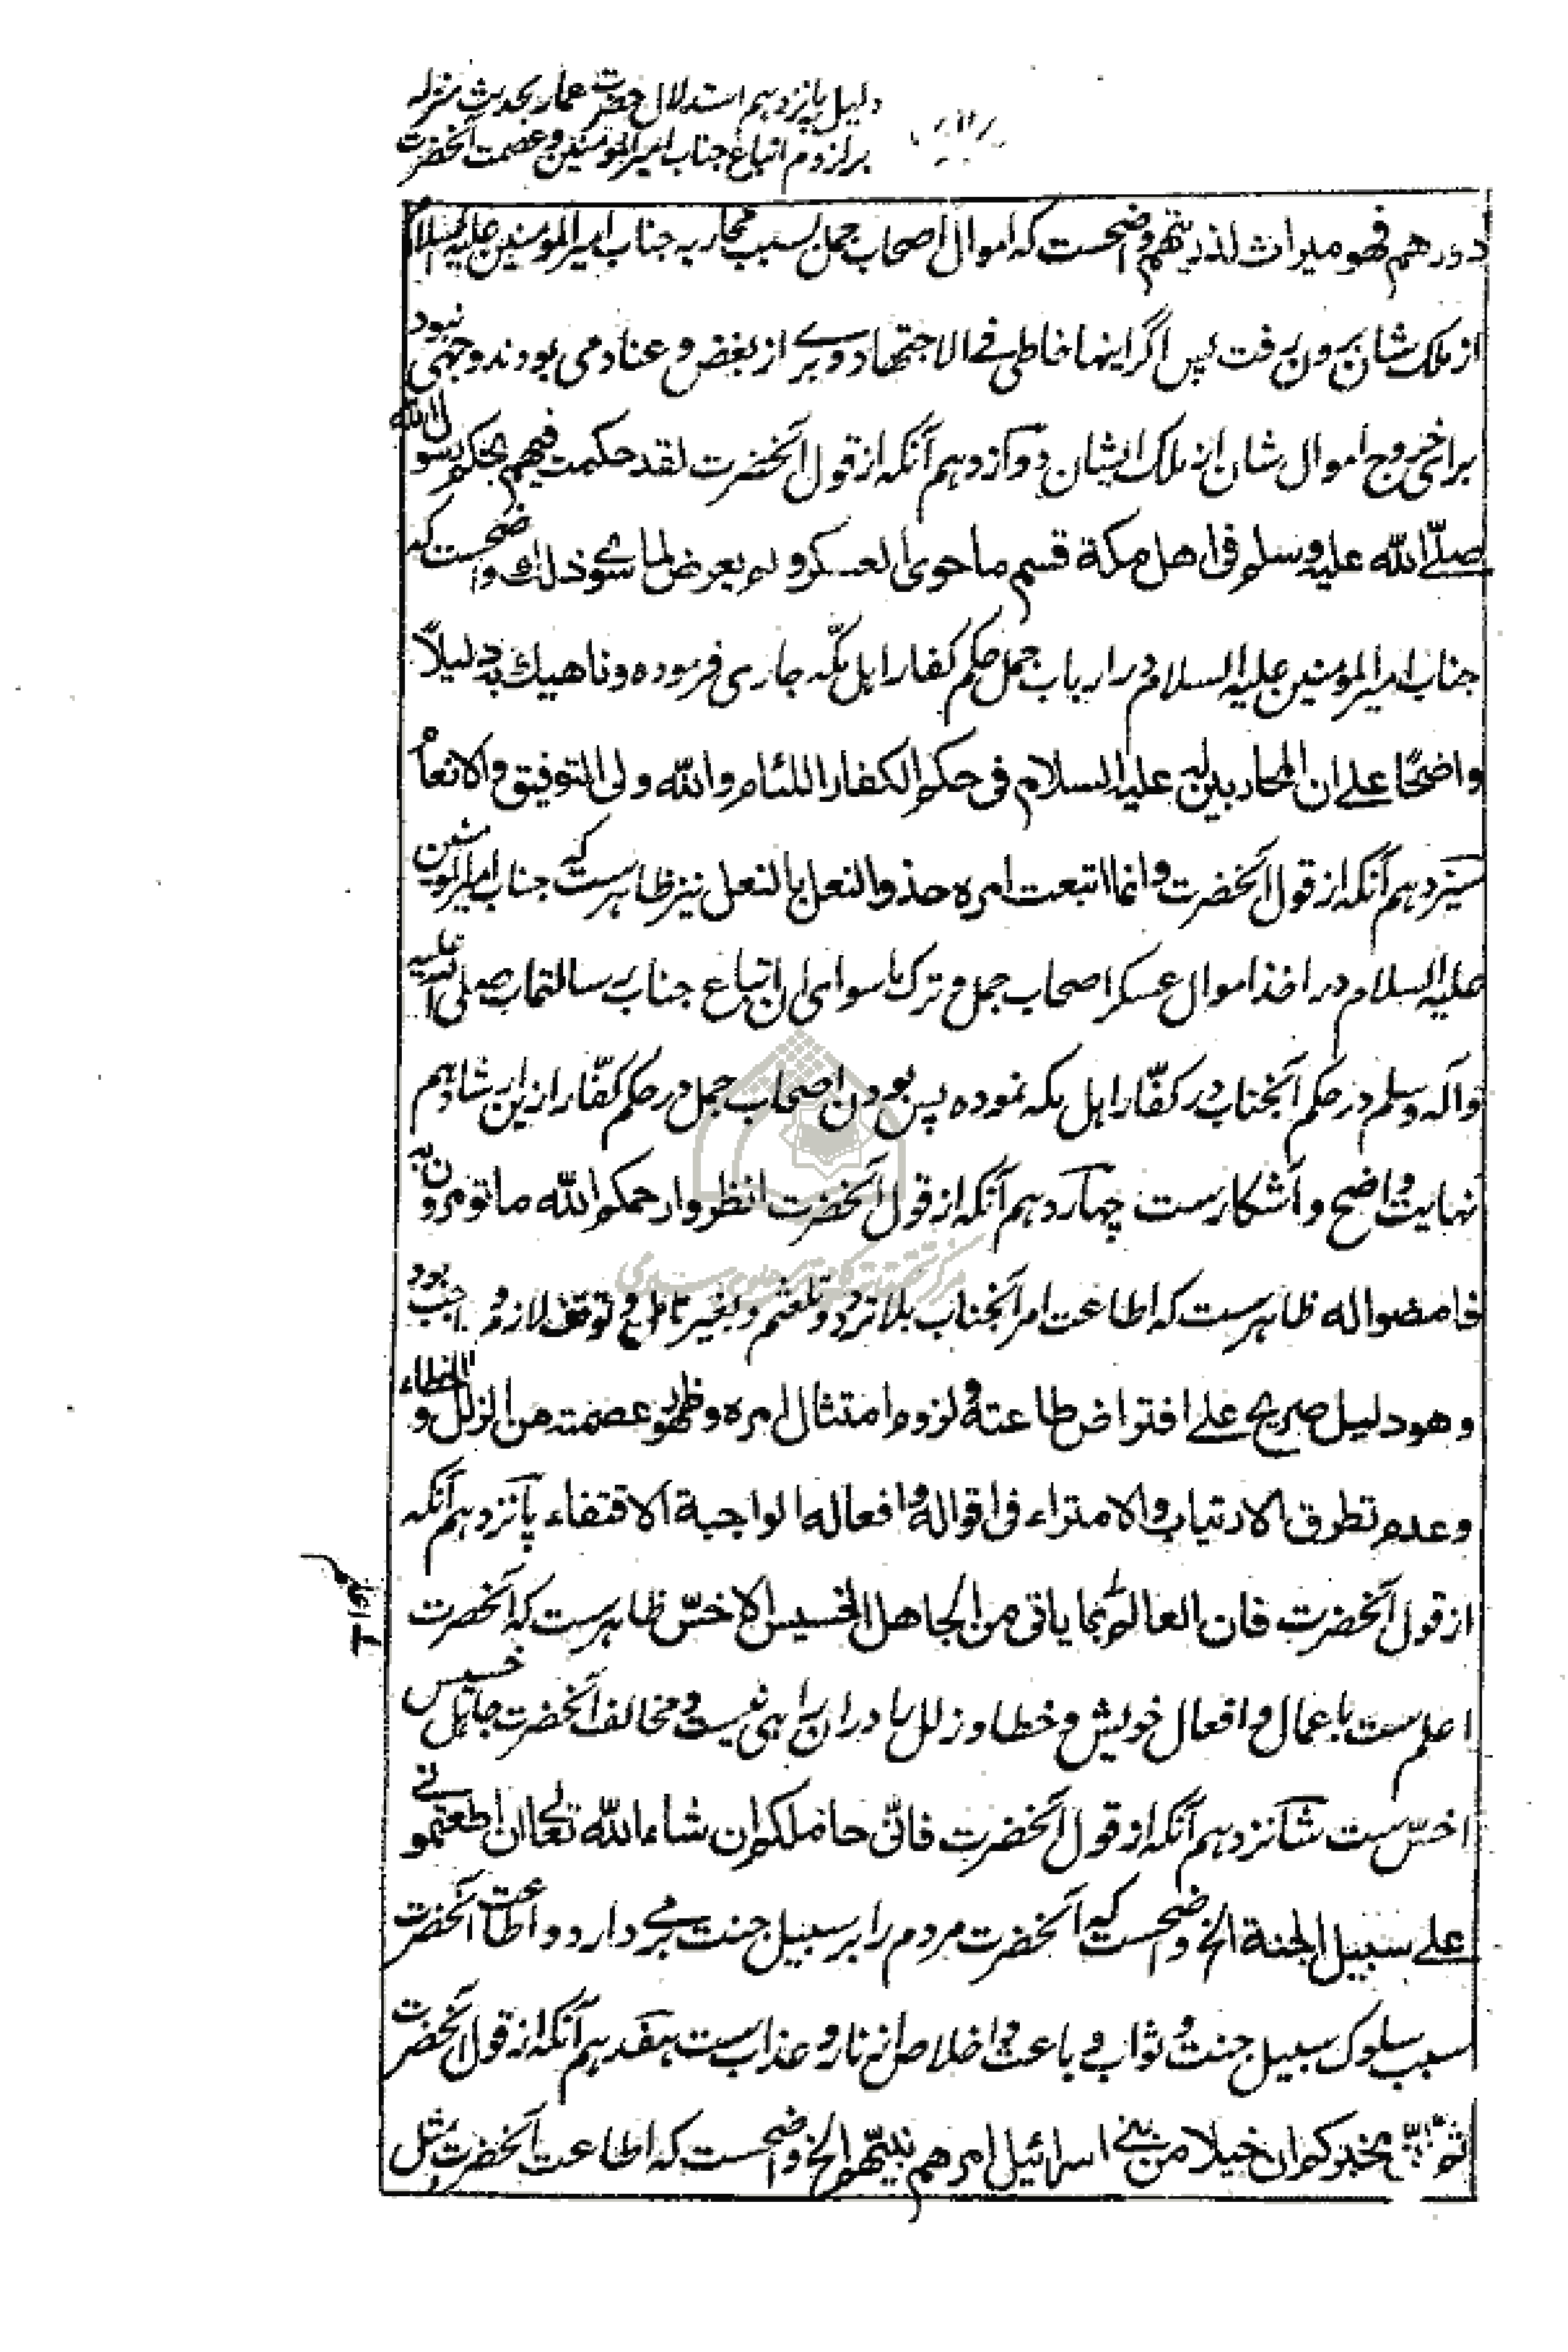 دلیل پانزدهم استدلال حضرت عمار بحدیث منزله
بر لزوم اتباع جناب امیرالمؤمنین و عصمت آنحضرت
دورهم فهو میراث لذریتهم واضحست که اموال اصحاب جمل بسبب محاربه جناب امیرالمؤمنین علیه السلام
از ملک شان برون نرفت پس اگر اینها خاطی فی الاجتهاد و بری از بغض و عناد می بودند وجهی نبود
برای خروج اموال شان از ملک ایشان دوازدهم آنکه از قول آنحضرت لقد حکمت فیهم بحکم رسول الله
صلّی الله علیه وسلم فی اهل مکة قسم ما حوی العسکر و لم یعرض لما سوی ذلک واضحست که
جناب امیرالمؤمنین علیه السلام در ارباب جمل حکم کفار اهل مکّه جاری فرموده و ناهیک به دلیلاً
واضحًا علی ان المحاربین له علیه السلام فی حکم الکفار اللئام والله ولی التوفیق والانعام
سیزدهم آنکه از قول آنحضرت وانما اتبعت امره حذو النعل بالنعل نیز ظاهرست که جناب امیرالمؤمنین
علیه السلام در اخذ اموال عسکر اصحاب جمل و ترک ماسوای ان اتباع جناب رسالتمآب صلی الله علیه
وآله وسلم در حکم آنجناب در کفّار اهل مکه نموده پس بودن اصحاب جمل در حکم کفّار ازین ارشاد هم
نهایت واضح و آشکارست چهاردهم آنکه از قول آنحضرت انظروا رحمکم الله ما تومرون به
فامضوا له ظاهرست که اطاعت امر آنجناب بلا تردد و تلعثم و بغیر تامل و توقف لازم و واجب بود
وهو دلیل صریح علی افتراض طاعته ولزوم امتثال امره وظهور عصمته من الزلل والخطاء
وعدم تطرق الارتیاب والامتراء فی اقواله وافعاله الواجبة الاقتفاء پانزدهم آنکه
از قول آنحضرت فان العالم اعلم بما یاتی من الجاهل الخسیس الاخسّ ظاهرست که آنحضرت
اعلم ست باعمال و افعال خویش و خطا و زلل را دران راهی نیست و مخالف آنحضرت جاهل خسیس
اخسّ ست شانزدهم آنکه از قول آنحضرت فانّی حاملکم ان شاء الله تعالی ان اطعتمونی
علی سبیل الجنة الخ واضحست که آنحضرت مردم را بر سبیل جنت می دارد و اطاعت آنحضرت
سبب سلوک سبیل جنت و ثواب و باعث اخلاص از نار و عذابست هفدهم آنکه از قول آنحضرت
مخبرکم ان خیلا من بنی اسرائیل امرهم نبیّهم الخ واضحست که اطاعت آنحضرت مثل